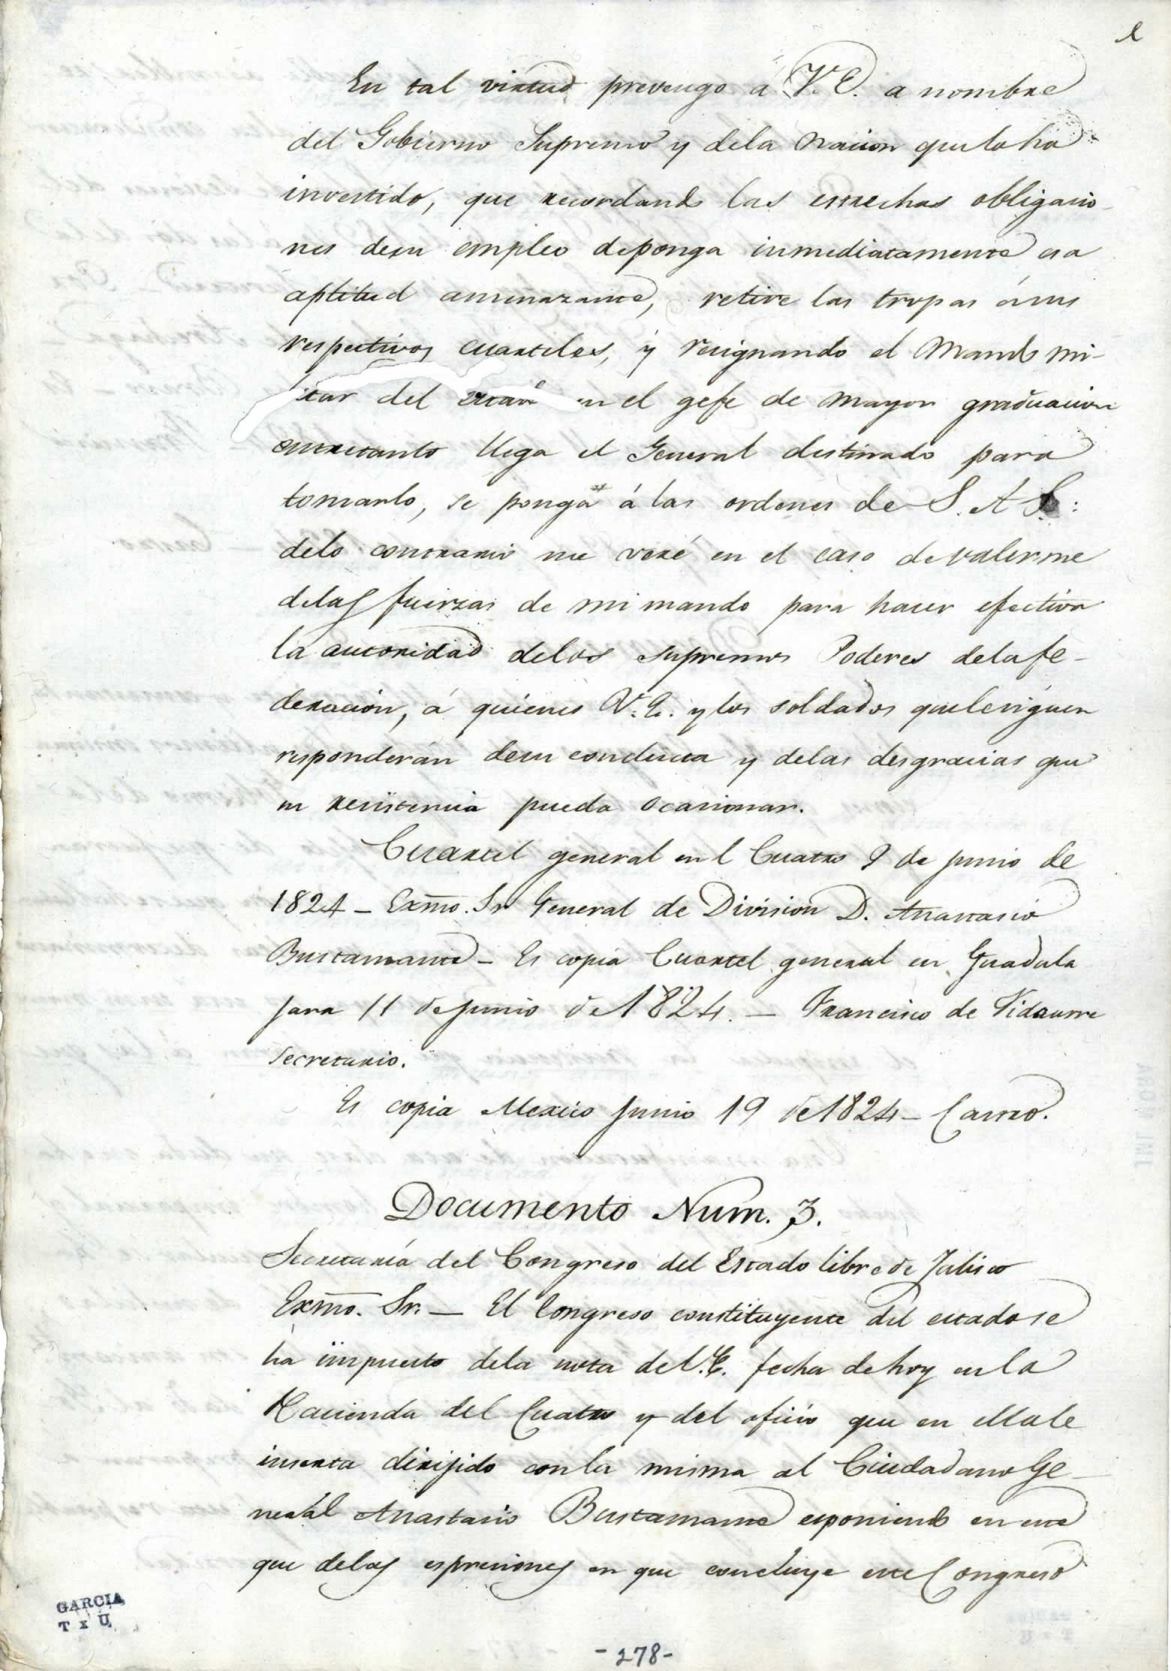 En tal virtud prevengo á V.E. a nombre
del Gobierno Supremo y dela Nacion que lo ha
investido, que recordando las estrechas obligacio-
nes desu empleo deponga inmediatamente esa
aptitud amenazante, retire las tropas ásus
respectivos cuarteles, y resignando el Mando mi-
litar del estado en el gefe de mayor graduacion
entretanto llega el General destinado para
tomarlo, se ponga á las ordenes de S. A. S.:
delo contrario me veré en el caso de valerme
delas fuerzas de mi mando para hacer efectiva
la autoridad delos supremos Poderes dela fe-
deracion, á quienes V.E. y los soldados quelesiguen
responderán desu conducta y delas desgracias que
su resistencia pueda ocasionar.
Cuartel general en el Cuatro 9 de junio de
1824 – Exmo. Sr General de Division D. Anastasio
Bustamante – Es copia Cuartel general en Guadala
jara 11 de junio de 1824. – Francisco de Vidaurre
secretario.
Es copia Mexico Junio 19 de 1824 –
Documento Num. 3.
Secretaría del Congreso del Estado libre de Jalisco
Exmo. Sr. – El Congreso constituyente del estado se
ha impuesto dela nota de V.E. fecha de hoy en la
Hacienda del Cuatro y del oficio que en ella le
inserta dirijido con la misma al Ciudadano Ge-
neral Anastasio Bustamante esponiendo en este
que delas espresiones en que concluye este Congreso
GARCIA
T x U
-278-